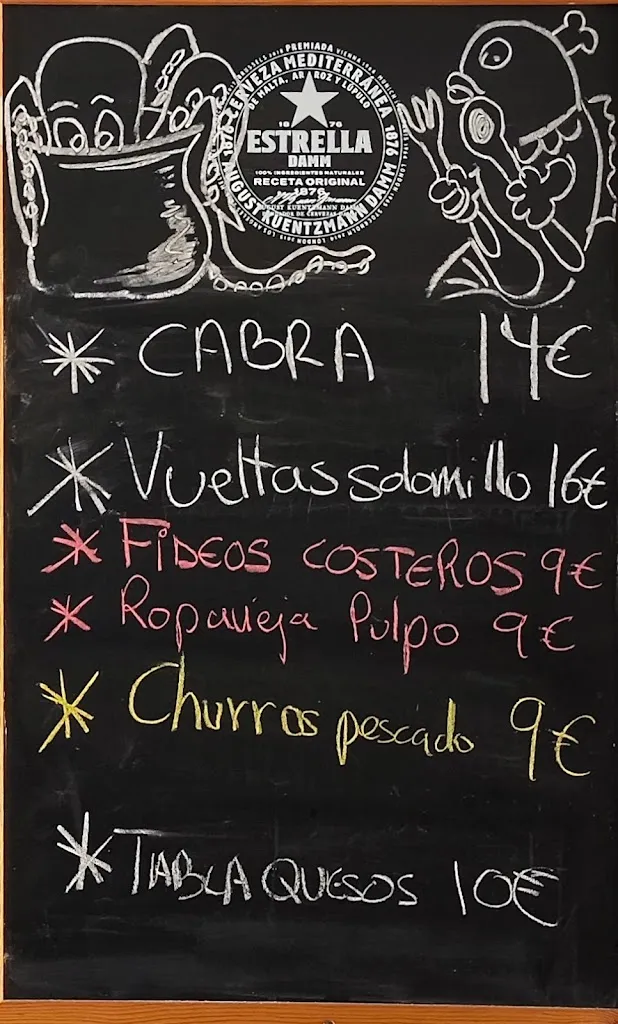 PREMIADA
CERVEZA MEDITERRÁNEA
DE MALTA, ARROZ Y LÚPULO
1876
ESTRELLA
DAMM
100% INGREDIENTES NATURALES
RECETA ORIGINAL
1876
AUGUST KUENTZMANN DAMM
1876
* CABRA 14€
* Vueltas solomillo 16€
* FIDEOS COSTEROS 9€
* Ropavieja Pulpo 9€
* Churros pescado 9€
* TABLA QUESOS 10€